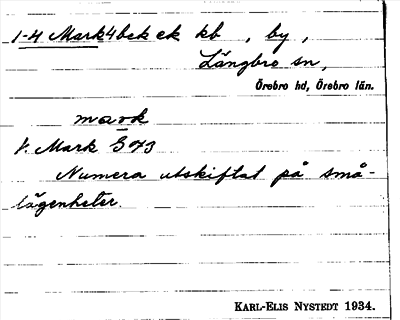 1-4 Mark 4bek ek kb , by ,
Längbro sn,
Örebro hd, Örebro län.
mark
V. Mark 373
Numera utskiftat på små-
lägenheter.
KARL-ELIS NYSTEDT 1934.